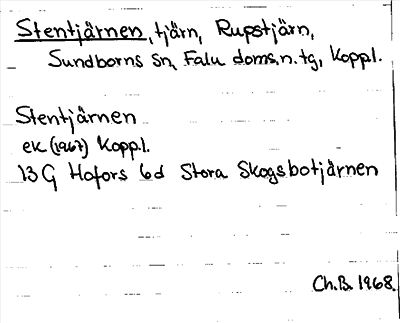 Stentjärnen, tjärn, Rupstjärn,
Sundborns sn, Falu doms. n. tg, Koppl.
Stentjärnen
ek (1967) Koppl.
13 G Hofors 6d Stora Skogsbotjärnen
Ch.B. 1968.